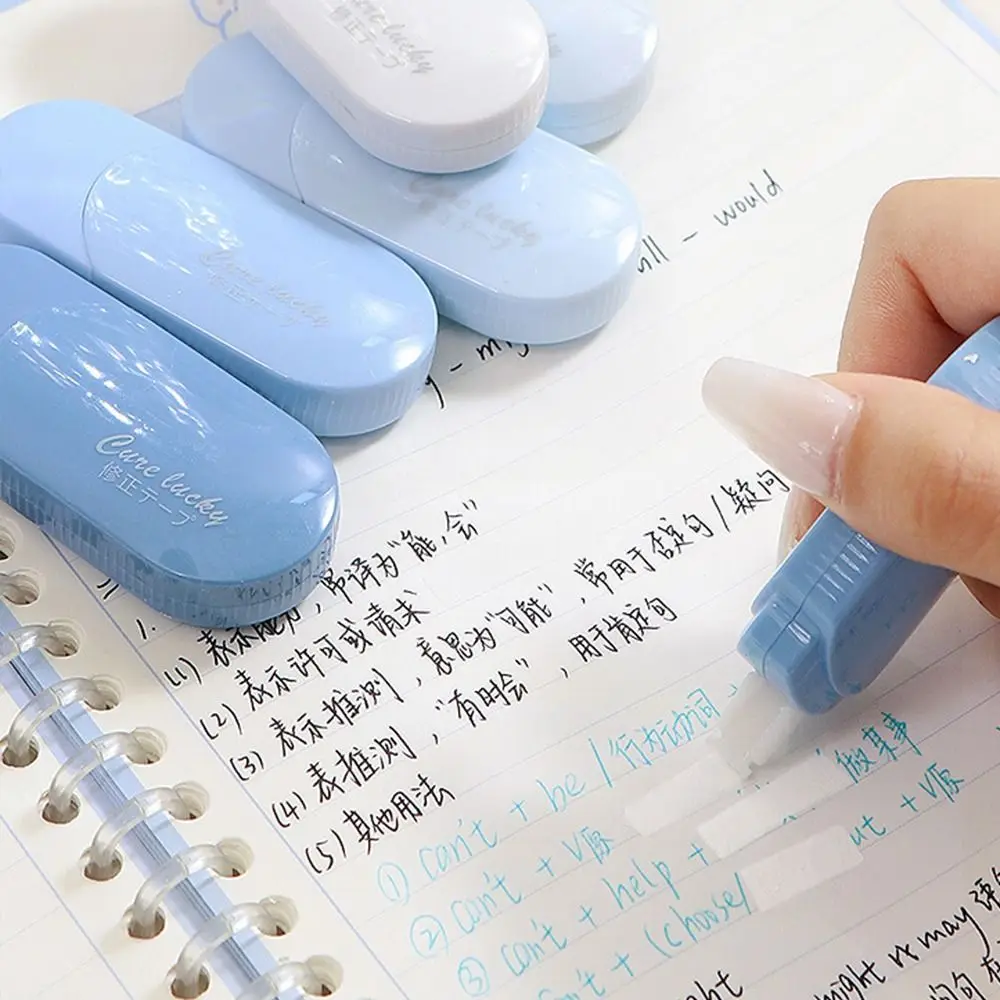 Cure lucky
修正テープ
Cure lucky
修正テープ
Cure lucky
修正テープ
Cure lucky
修正テープ
ll - would
y - mig
1.
(1) 表示能力，常译为"能，会"
(2) 表示许可或请求
(3) 表示推测，意思为"可能"，常用于否定句/疑问
(4) 表推测，"有时会"，用于肯定句
(5) 其他用法
① can't + be /行为动词
② can't + V原 做某事
③ can't + help + ut + V原
n't + (choose/
might vs may